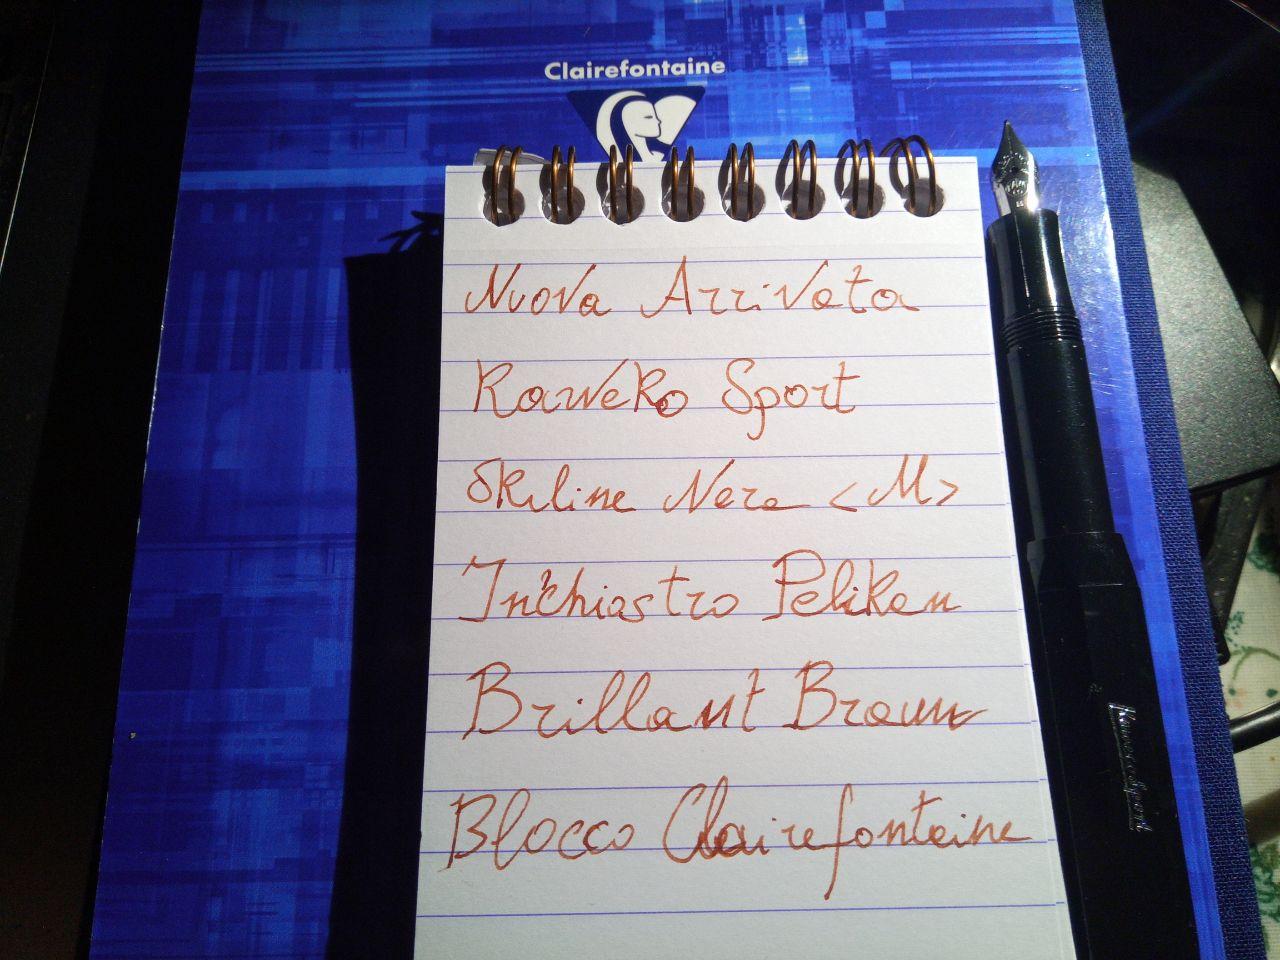 Clairefontaine
Nuova Arrivata
Kaweko Sport
Skiline Nera <M>
Inchiostro Pelikan
Brillant Brown
Blocco Clairefontaine
Kaweco Sport